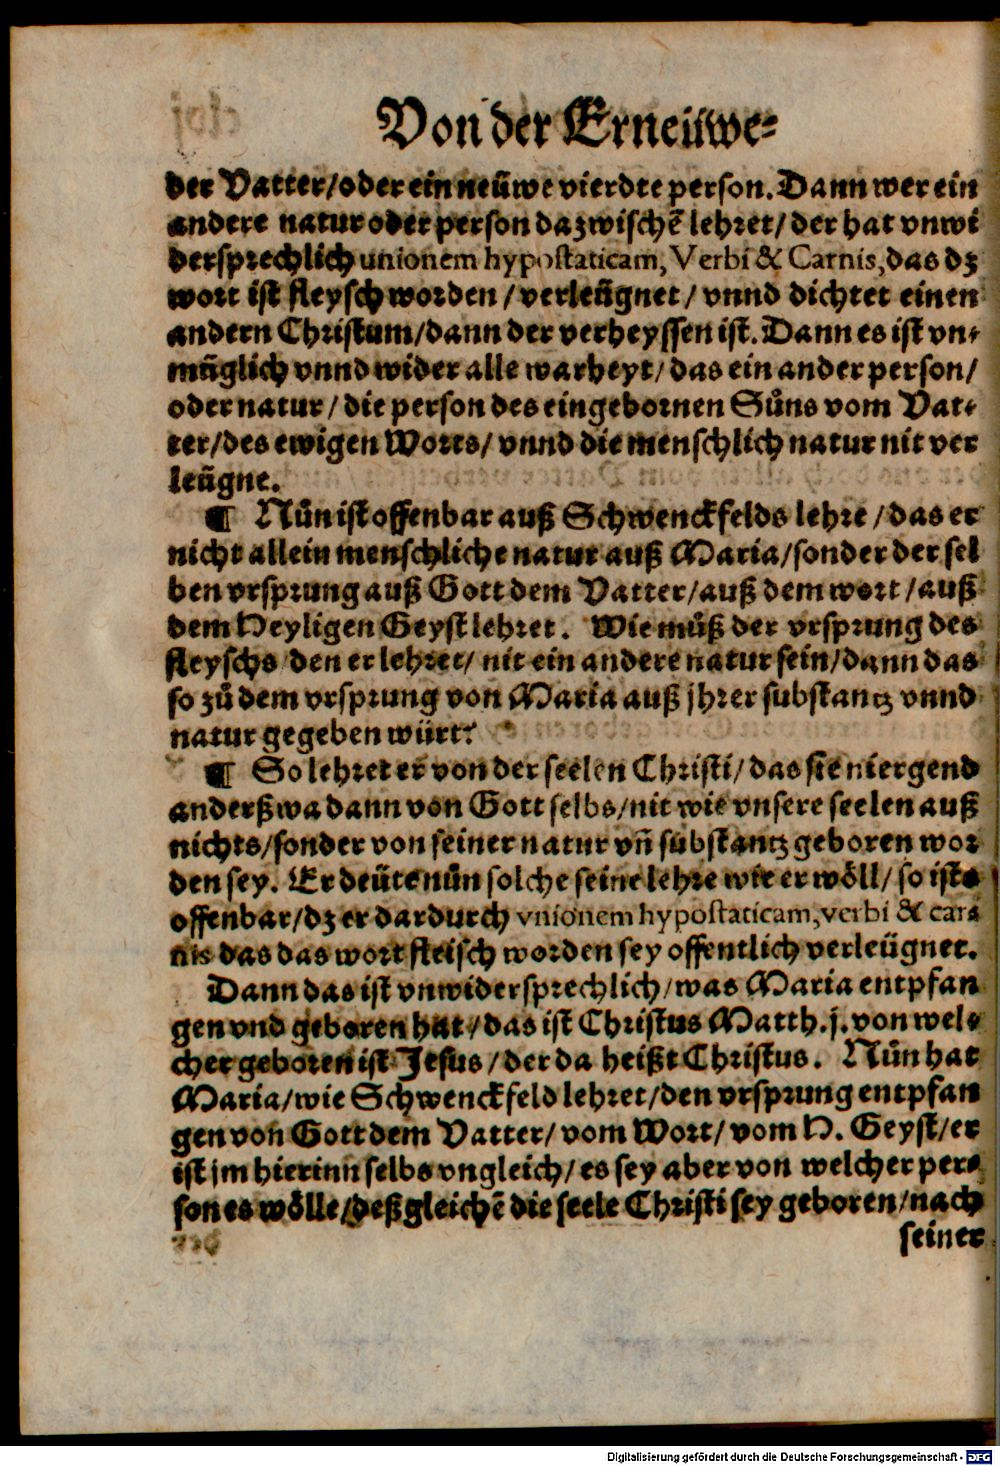 Von der Erneüwe⸗
der Vatter/oder ein neüwe vierdte person. Dann wer ein
andere natur oder person dazwischē lehret/ der hat vnwi
dersprechlich unionem hypostaticam, Verbi & Carnis, das dz
wort ist fleysch worden / verleügnet / vnnd dichtet einen
andern Christum/dann der verheyssen ist. Dann es ist vn⸗
müglich vnnd wider alle warheyt/ das ein ander person/
oder natur / die person des eingebornen Sůns vom Vat⸗
ter/des ewigen Worts/ vnnd die menschlich natur nit ver
leügne.
¶ Nůn ist offenbar auß Schwenckfelds lehre /das er
nicht allein menschliche natur auß Maria/sonder der sel
ben vrsprung auß Gott dem Vatter/auß dem wort /auß
dem Heyligen Geyst lehret. Wie můß der vrsprung des
fleyschs den er lehret/ nit ein andere natur sein/dann das
so zů dem vrsprung von Maria auß jhrer substantz vnnd
natur gegeben würt?
¶ So lehret er von der seelen Christi/ das sie niergend
anderßwa dann von Gott selbs/nit wie vnsere seelen auß
nichts/sonder von seiner natur vñ substantz geboren wor
den sey. Er deüte nůn solche seine lehre wie er wöll/ so ists
offenbar/dz er dardurch vnionem hypostaticam, verbi & car⸗
nis das das wort fleisch worden sey offentlich verleügnet.
Dann das ist vnwidersprechlich/was Maria entpfan
gen vnd geboren hat /das ist Christus Matth. j. von wel⸗
cher geboren ist Jesus /der da heißt Christus. Nůn hat
Maria/wie Schwenckfeld lehret/den vrsprung entpfan
gen von Gott dem Vatter/ vom Wort/ vom H. Geyst/er
ist jm hierinn selbs vngleich/ es sey aber von welcher per⸗
son es wölle/deßgleichē die seele Christi sey geboren/nach
seiner
Digitalisierung gefördert durch die Deutsche Forschungsgemeinschaft - DFG